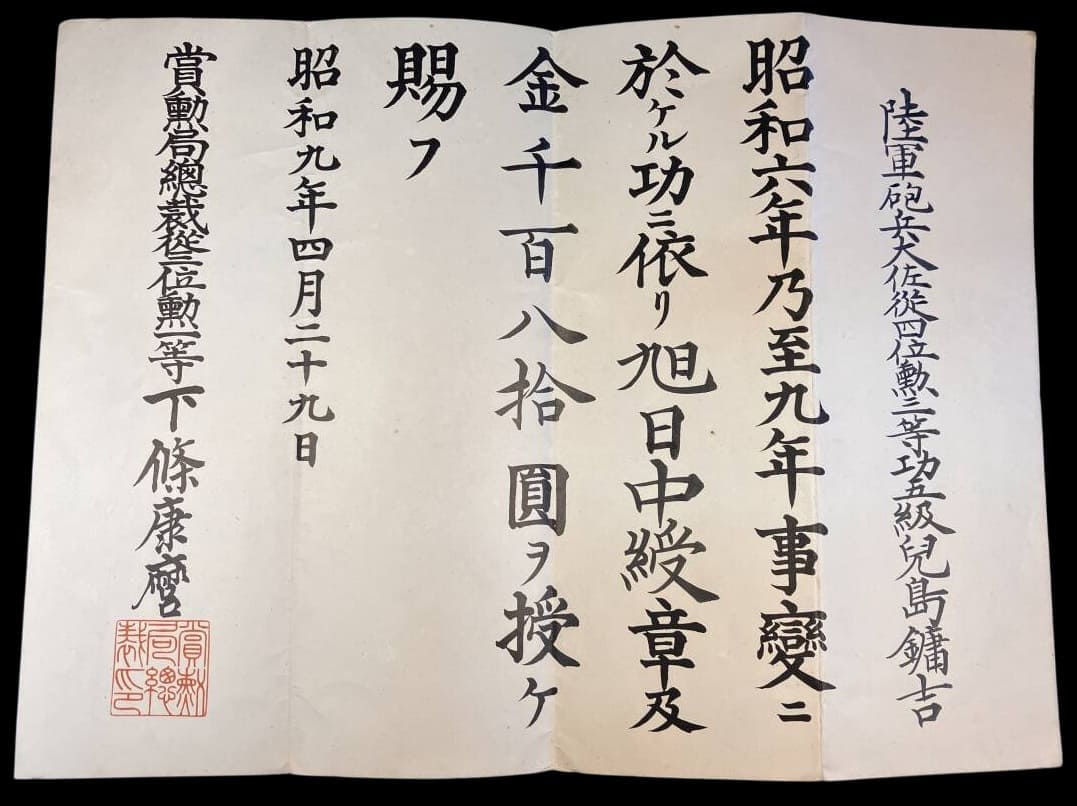 陸軍砲兵大佐從四位勲三等功五級兒島鏞吉
昭和六年乃至九年事變ニ
於ケル功ニ依リ旭日中綬章及
金千百八拾圓ヲ授ケ
賜フ
昭和九年四月二十九日
賞勲局總裁從三位勲一等下條康麿
賞勲
局總
裁印